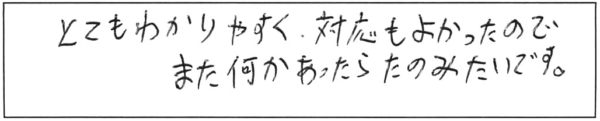 とてもわかりやすく.対応もよかったので
また何かあったらたのみたいです。